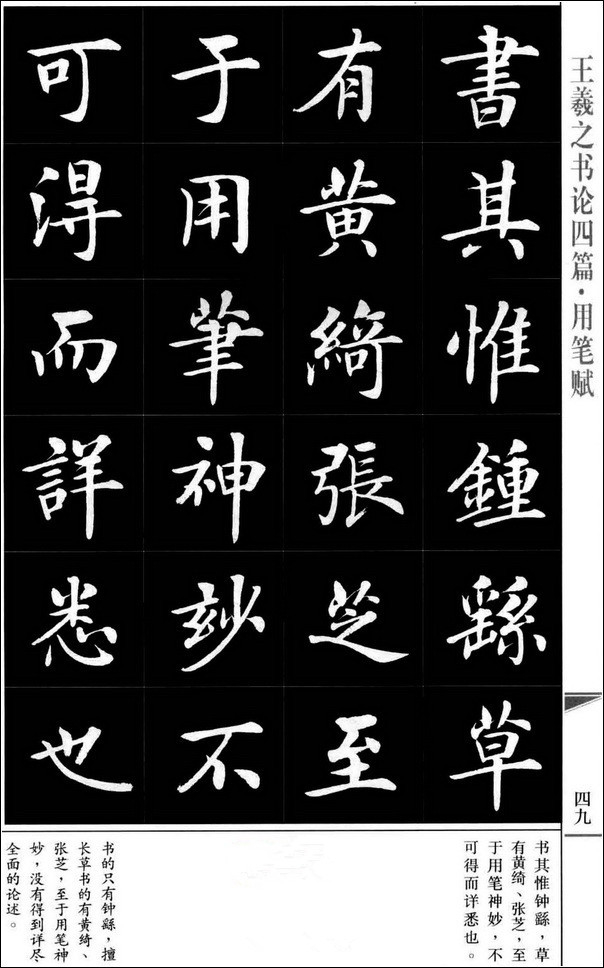 王羲之书论四篇·用笔赋
書其惟鍾繇草
有黄綺張芝至
于用筆神妙不
可得而詳悉也
四九
书其惟钟繇，草
有黄绮、张芝，至
于用笔神妙，不
可得而详悉也。
书的只有钟繇，擅
长草书的有黄绮、
张芝，至于用笔神
妙，没有得到详尽
全面的论述。